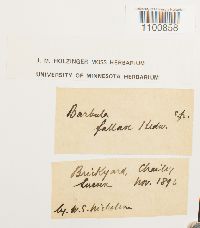 1100858
J. M. HOLZINGER MOSS HERBARIUM
UNIVERSITY OF MINNESOTA HERBARIUM
Barbula c.fr.
fallax Hedw.
Brickyard, Chailey
Sussex Nov. 1896
leg. W. E. Nicholson